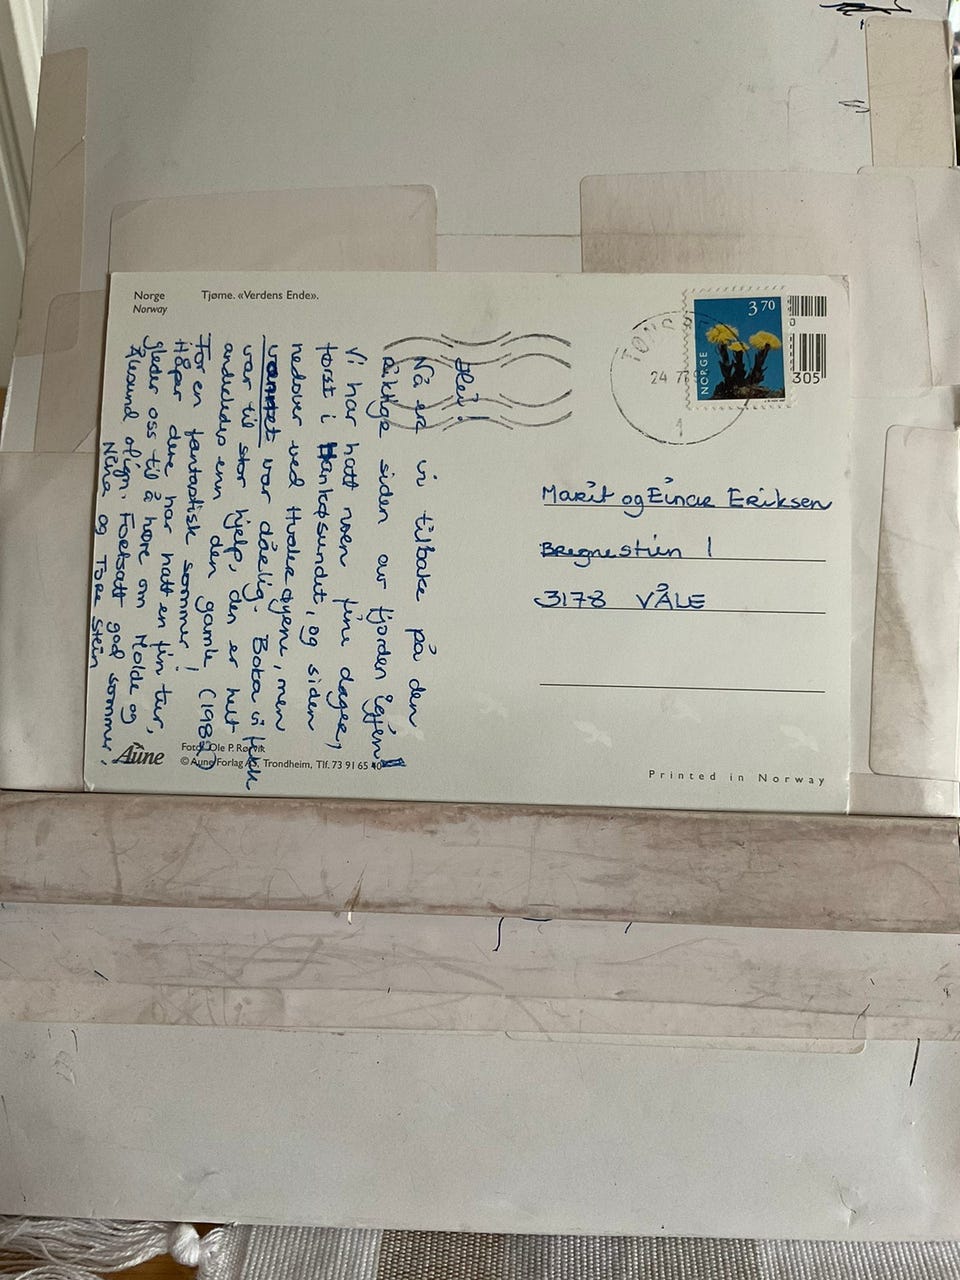 Norge
Norway
Tjøme. «Verdens Ende».
Hei!
Nå er vi tilbake på den
riktige siden av fjorden igjen!
Vi har hatt noen fine dager,
først i Hankøsundet, og siden
nedover ved Hvalerøyene, men
været var dårlig. Boka vi fikk
var til stor hjelp, den er helt
anderledes enn den gamle (1982)
For en fantastisk sommer!
Håper dere har hatt en fin tur,
gleder oss til å høre om Molde og
Ålesund o.lign. Fortsatt god sommer.
Nina og Tore Stein
NORGE
3 70
0
305
24 7
1
Marit og Einar Eriksen
Bregnestien 1
3178 VÅLE
Aune
Foto: Ole P. Rørvik
© Aune Forlag AS, Trondheim, Tlf. 73 91 65 40
Printed in Norway